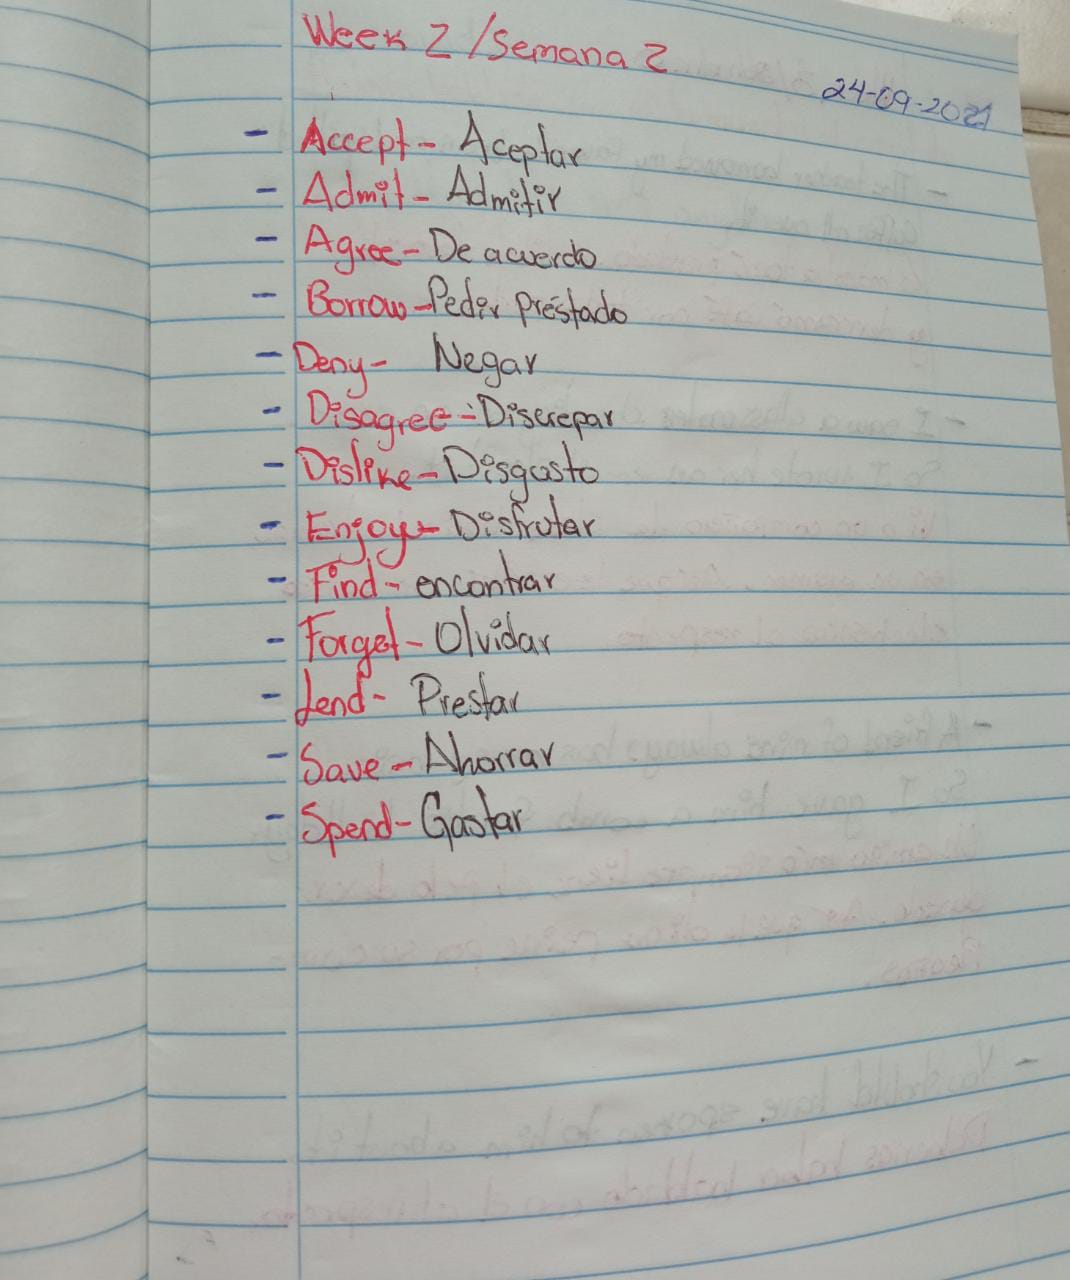 Week 2 / Semana 2
24-09-2021
- Accept - Aceptar
- Admit - Admitir
- Agree - De acuerdo
- Borrow - Pedir prestado
- Deny - Negar
- Disagree - Discrepar
- Dislike - Disgusto
- Enjoy - Disfrutar
- Find - encontrar
- Forget - Olvidar
- Lend - Prestar
- Save - Ahorrar
- Spend - Gastar